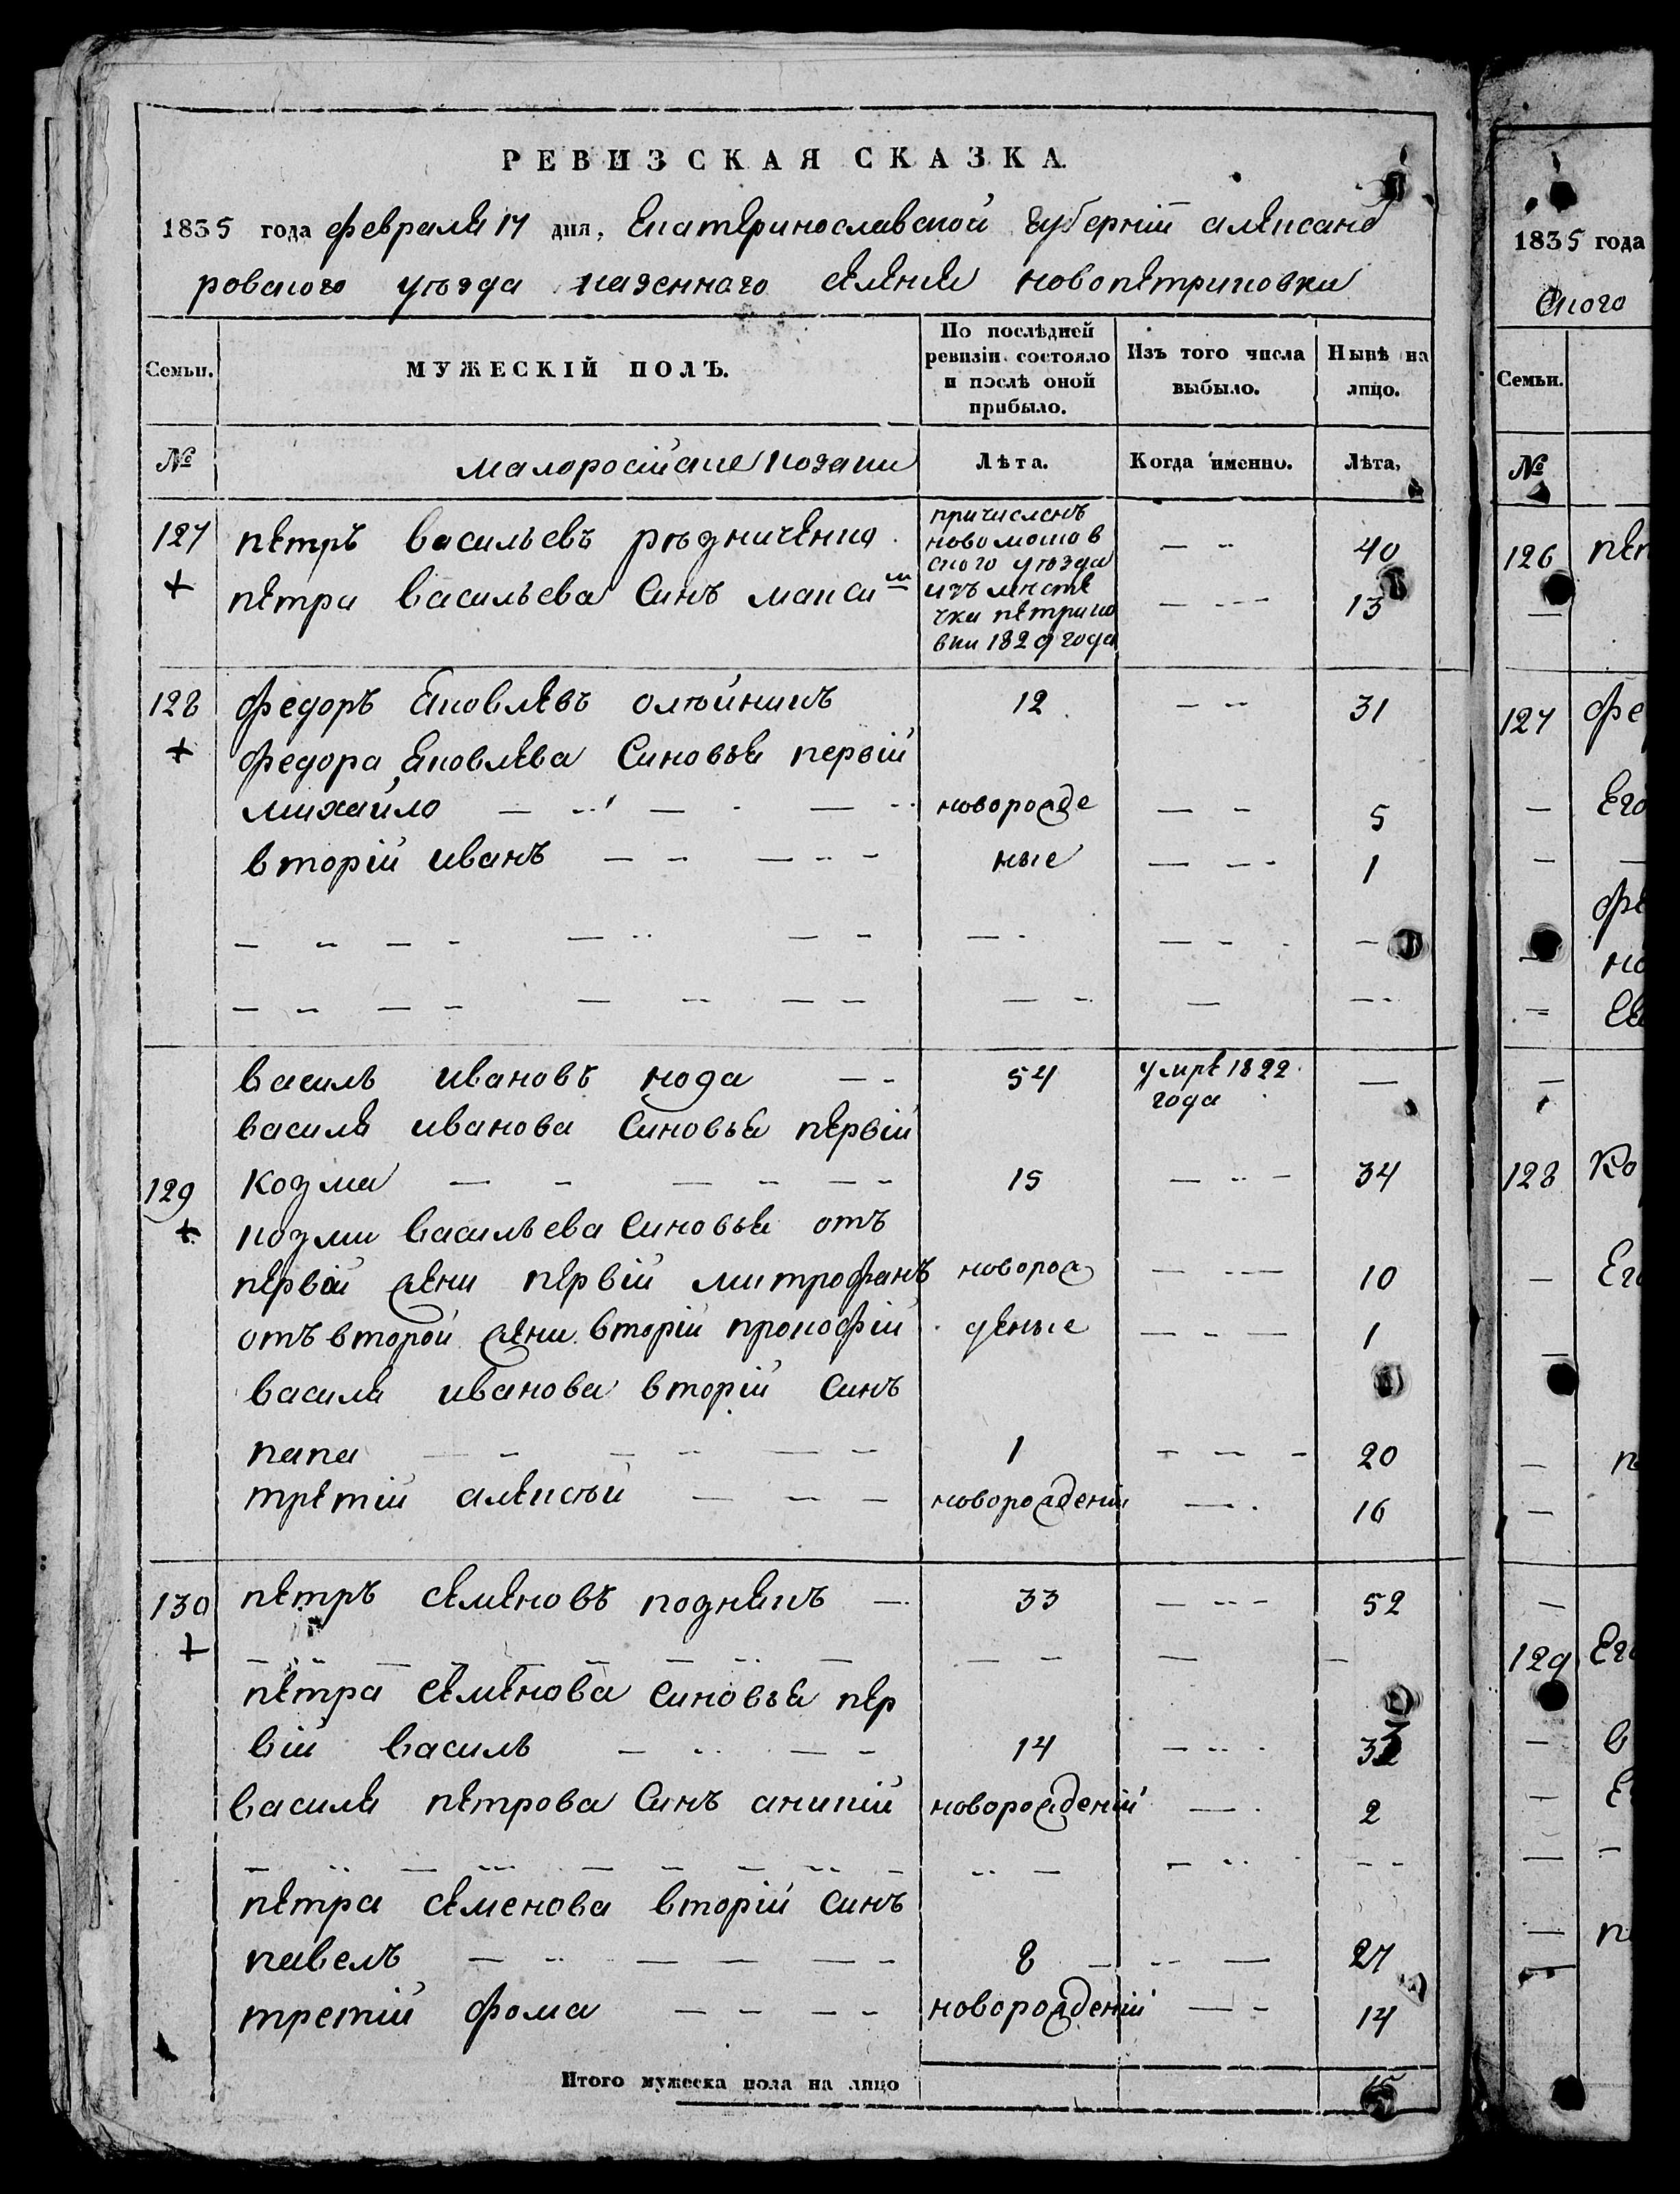 РЕВИЗСКАЯ СКАЗКА
1835 года февраля 17 дня, Екатеринославской губерніи александ
ровского уѣзда казенного селения новопетриковки
Семьи.
МУЖЕСКІЙ ПОЛЪ.
По послѣдней ревизіи состояло и послѣ оной прибыло.
Изъ того числа выбыло.
Нынѣ на лицо.
№ малоросійские козаки Лѣта. Когда именно. Лѣта,
127 петръ васильевъ рѣзниченко — 40
причисленъ
новомосков
ского уѣзда
изъ месте
чка петрико
вки 1829 года
+ петра васильева синъ максим — 13
128 федоръ яковлевъ олѣйникъ 12 — 31
+ федора яковлева синовья первій
михайло — новорожде — 5
вторій иванъ — ные — 1
василь ивановъ кода — 54 умре 1822 года —
василя иванова синовья первій
129 козма — 15 — 34
+ козми васильева синовья отъ
первой жени первій митрофанъ новорож — 10
отъ второй жени вторій прокофій деные — 1
василя иванова вторій синъ
папа — 1 — 20
третій алексѣй — новорожденій — 16
130 петръ семеновъ — 33 — 52
+
петра семенова синовья пер
вій василь — 14 — 33
василя петрова синъ новорожденій — 2
петра семенова вторій синъ
павелъ — 8 — 27
третій фома — новорожденій — 14
Итого мужеска пола на лицо 15
1835 года
ского
Семьи.
№
126
127
128
129